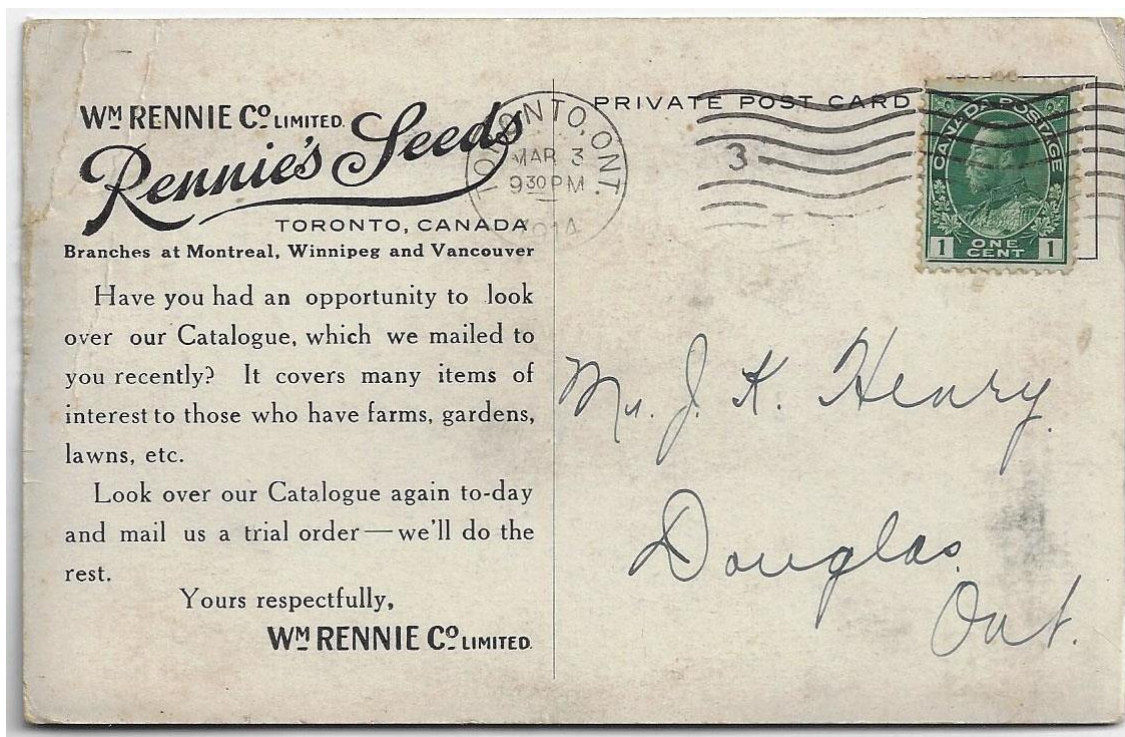 WM RENNIE CO LIMITED.
Rennie's Seeds
TORONTO, CANADA
Branches at Montreal, Winnipeg and Vancouver
Have you had an opportunity to look
over our Catalogue, which we mailed to
you recently? It covers many items of
interest to those who have farms, gardens,
lawns, etc.
Look over our Catalogue again to-day
and mail us a trial order—we'll do the
rest.
Yours respectfully,
WM RENNIE CO LIMITED.
TORONTO, ONT.
MAR 3
930 PM
1914
3
PRIVATE POST CARD
CANADA POSTAGE
1 ONE CENT 1
Mr. J. K. Henry.
Douglas.
Ont.